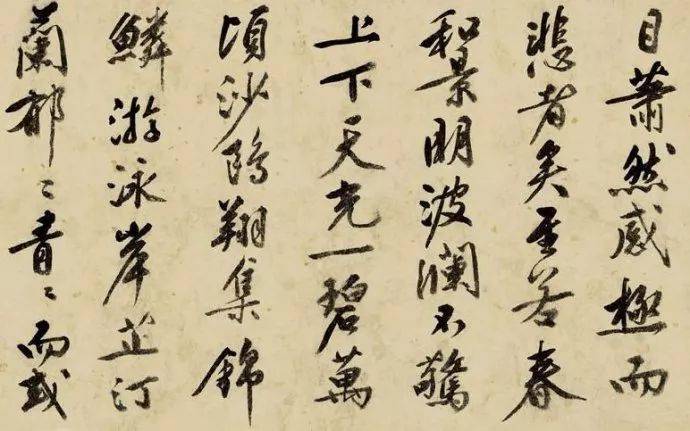 目蕭然感極而
悲者矣至若春
和景明波瀾不驚
上下天光一碧萬
頃沙鷗翔集錦
鱗游泳岸芷汀
蘭郁〻青〻而或